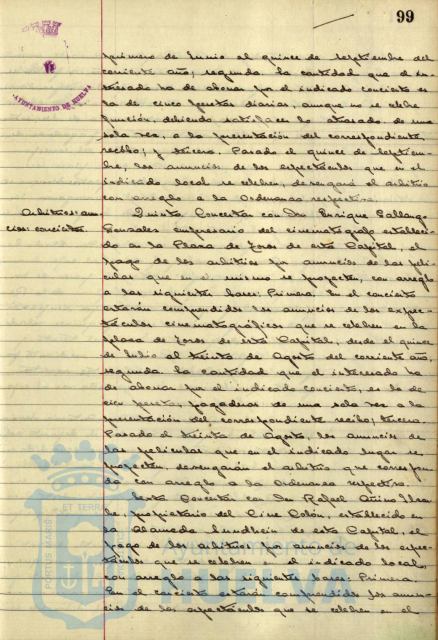 99
AYUNTAMIENTO DE HUELVA
primero de Junio al quince de Septiembre del
corriente año; segunda la cantidad que el in-
teresado ha de abonar por el indicado concierto es
la de cinco pesetas diarias, aunque no se celebre
función, debiendo satisfacer lo atrasado de una
sola vez, a la presentación del correspondiente
recibo; y tercera. Pasado el quince de Septiem-
bre, los anuncios de los espectáculos que en el
indicado local se celebren, devengará el arbitrio
con arreglo a la Ordenanza respectiva.
Arbitrios: anun-
cios: conciertos.
Quinta Concertar con Don Enrique Gallango
Gonzales empresario del cinematógrafo estableci-
do en la Plaza de Toros de esta Capital, el
pago de los arbitrios por anuncios de las pelí-
culas que en el mismo se proyecten, con arreglo
a las siguientes bases: Primera. En el concierto
estarán comprendidos los anuncios de los espec-
táculos cinematográficos que se celebren en la
plaza de Toros de esta Capital, desde el quince
de Julio al treinta de Agosto del corriente año,
segunda la cantidad que el interesado ha
de abonar por el indicado concierto, es la de
cien pesetas, pagaderas de una sola vez a la
presentación del correspondiente recibo; tercera.
Pasado el treinta de Agosto, los anuncios de
las películas que en el indicado lugar se
proyecten, devengarán el arbitrio que correspon-
da con arreglo a la Ordenanza respectiva.
Sexta Concertar con Don Rafael
propietario del Cine Colón, establecido en
la Alameda Sundheim de esta Capital, el
pago de los arbitrios por anuncios de los espec-
táculos que se celebren en el indicado local,
con arreglo a las siguientes bases: Primera.
En el concierto estarán comprendidos los anun-
cios de los espectáculos que se celebren en el
Ayuntamiento de
HUELVA
PORTUS MARIS
ET TERRAE